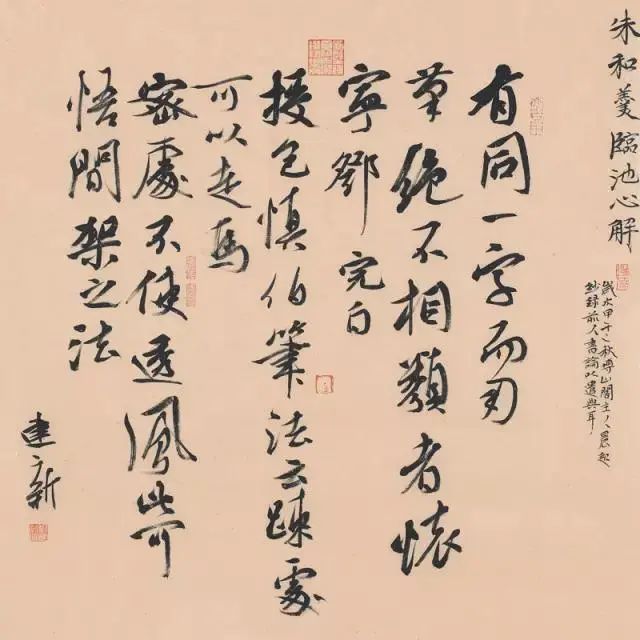 朱和羹臨池心解
歲次甲午之秋博山閣主人晨起
抄錄前人書論以遣興耳
有同一字而用
筆絕不相類者懷
寧鄧完白
授包慎伯筆法云疎處
可以走馬
密處不使透風此可
悟間架之法
建新